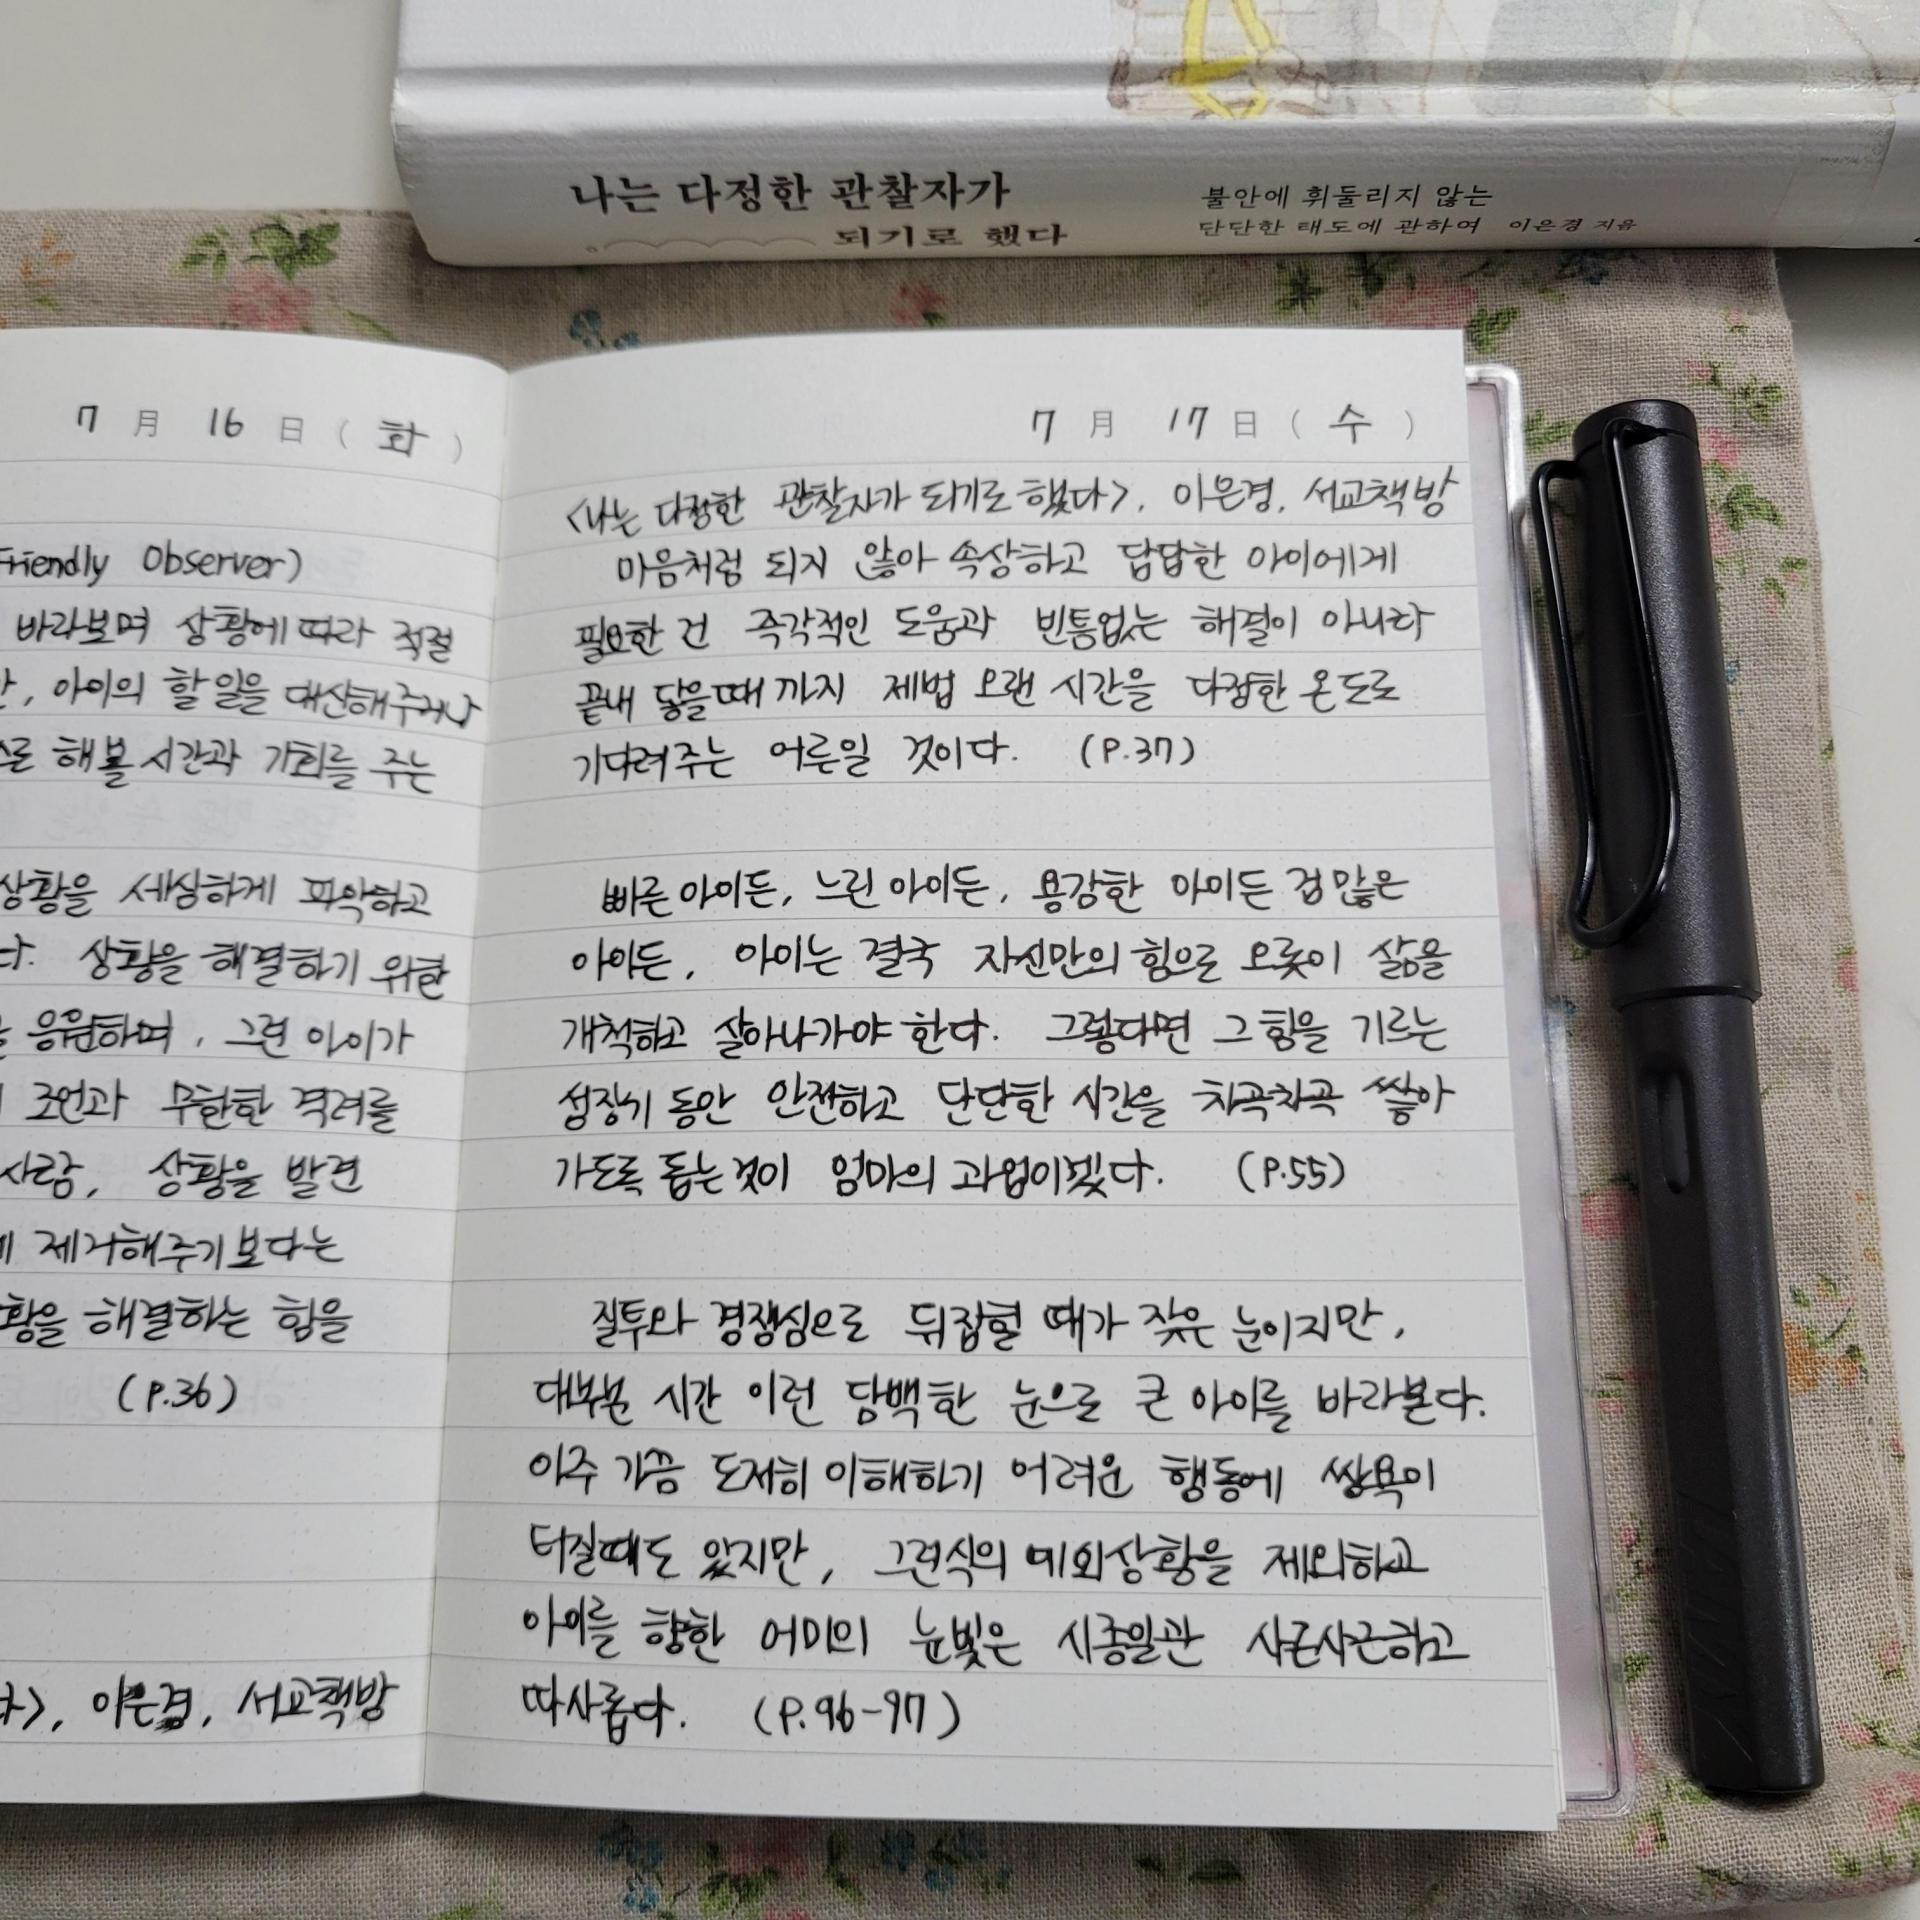 나는 다정한 관찰자가
되기로 했다
불안에 휘둘리지 않는
단단한 태도에 관하여 이은경 지음
7 月 16 日 ( 화 )
Friendly Observer)
바라보며 상황에 따라 적절
, 아이의 할 일을 대신해주거나
해볼 시간과 기회를 주는
상황을 세심하게 파악하고
다. 상황을 해결하기 위한
응원하며, 그런 아이가
조언과 무한한 격려를
사람, 상황을 발견
제거해주기보다는
황을 해결하는 힘을
(P.36)
다>, 이은경, 서교책방
7 月 17 日 ( 수 )
<나는 다정한 관찰자가 되기로 했다>, 이은경, 서교책방
마음처럼 되지 않아 속상하고 답답한 아이에게
필요한 건 즉각적인 도움과 빈틈없는 해결이 아니라
끝내 닿을때까지 제법 오랜 시간을 다정한 온도로
기다려주는 어른일 것이다. (P.37)
빠른 아이든, 느린 아이든, 용감한 아이든 겁 많은
아이든, 아이는 결국 자신만의 힘으로 오롯이 삶을
개척하고 살아나가야 한다. 그렇다면 그 힘을 기르는
성장기 동안 안전하고 단단한 시간을 차곡차곡 쌓아
가도록 돕는 것이 엄마의 과업이겠다. (P.55)
질투와 경쟁심으로 뒤집힐 때가 잦은 눈이지만,
대부분 시간 이런 담백한 눈으로 큰 아이를 바라본다.
아주 가끔 도저히 이해하기 어려운 행동에 쌍욕이
터질때도 있지만, 그런식의 예외상황을 제외하고
아이를 향한 어미의 눈빛은 시종일관 사근사근하고
따사롭다. (P.96-97)
LAMY